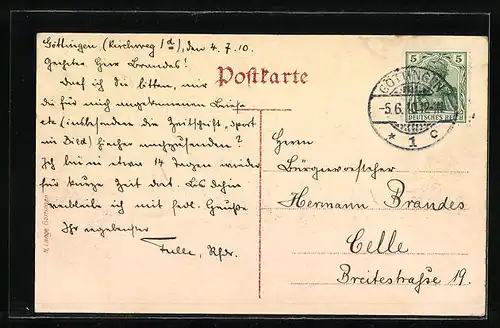 Göttingen, (Kirchweg 1d), den 4. 7. 10.
Geehrter Herr Brandes!
Darf ich Sie bitten, mir
die für mich angekommenen Briefe
etc (insbesondere die Zeitschrift, Sport
im Bild) hierher nachzusenden?
Ich bin in etwa 14 Tagen wieder
für kurze Zeit dort. Bis dahin
verbleibe ich mit frdl. Grüßen
Ihr ergebenster
Postkarte
5 5
DEUTSCHES REICH
GÖTTINGEN
1 c
Herrn
Bürgervorsteher
Hermann Brandes
Celle
Breitestraße 19.